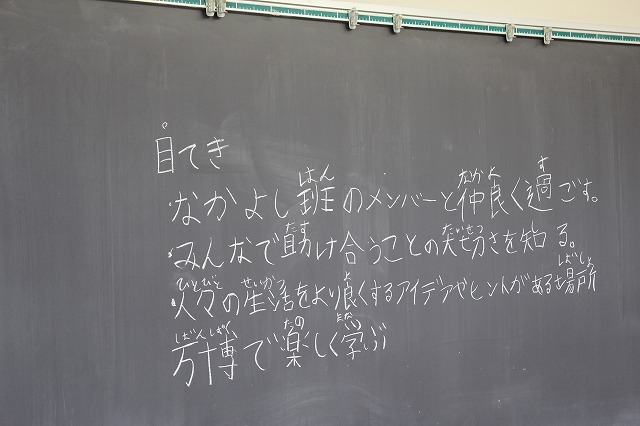 目てき
・なかよし班のメンバーと仲良く過ごす。
・みんなで助け合うことの大切さを知る。
・人々の生活をより良くするアイデアやヒントがある場所
万博で楽しく学ぶ